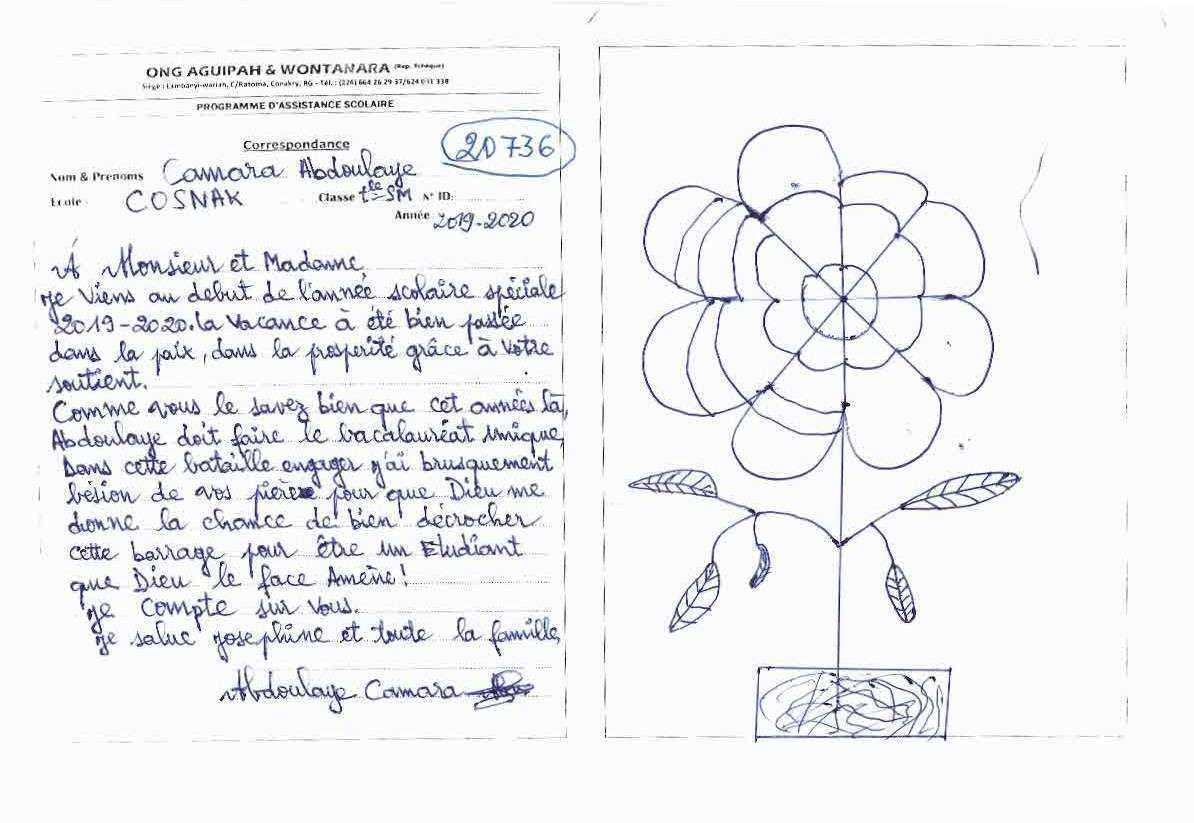 ONG AGUIPAH & WONTANARA (Rep. Tchèque)
Siège : Lambanyi-wariah, C/Ratoma, Conakry, RG - Tél. : (224) 664 26 29 37/624 031 338
PROGRAMME D'ASSISTANCE SCOLAIRE
Correspondance
20736
Nom & Prenoms Camara Abdoulaye
Ecole : COSNAK Classe tle SM N° ID:
Année 2019-2020
À Monsieur et Madame,
Je viens au debut de l'année scolaire spéciale
2019-2020. la vacance à été bien passée
dans la paix, dans la prosperité grâce à votre
soutient.
Comme vous le savez bien que cet années là,
Abdoulaye doit faire le bacalauréat unique,
Dans cette bataille engager j'ai brusquement
bésion de vos pière pour que Dieu me
donne la chance de bien décrocher
cette barrage pour être un Etudiant
que Dieu le face Amène!
Je compte sur vous.
Je salue Josephine et toute la famille,
Abdoulaye Camara